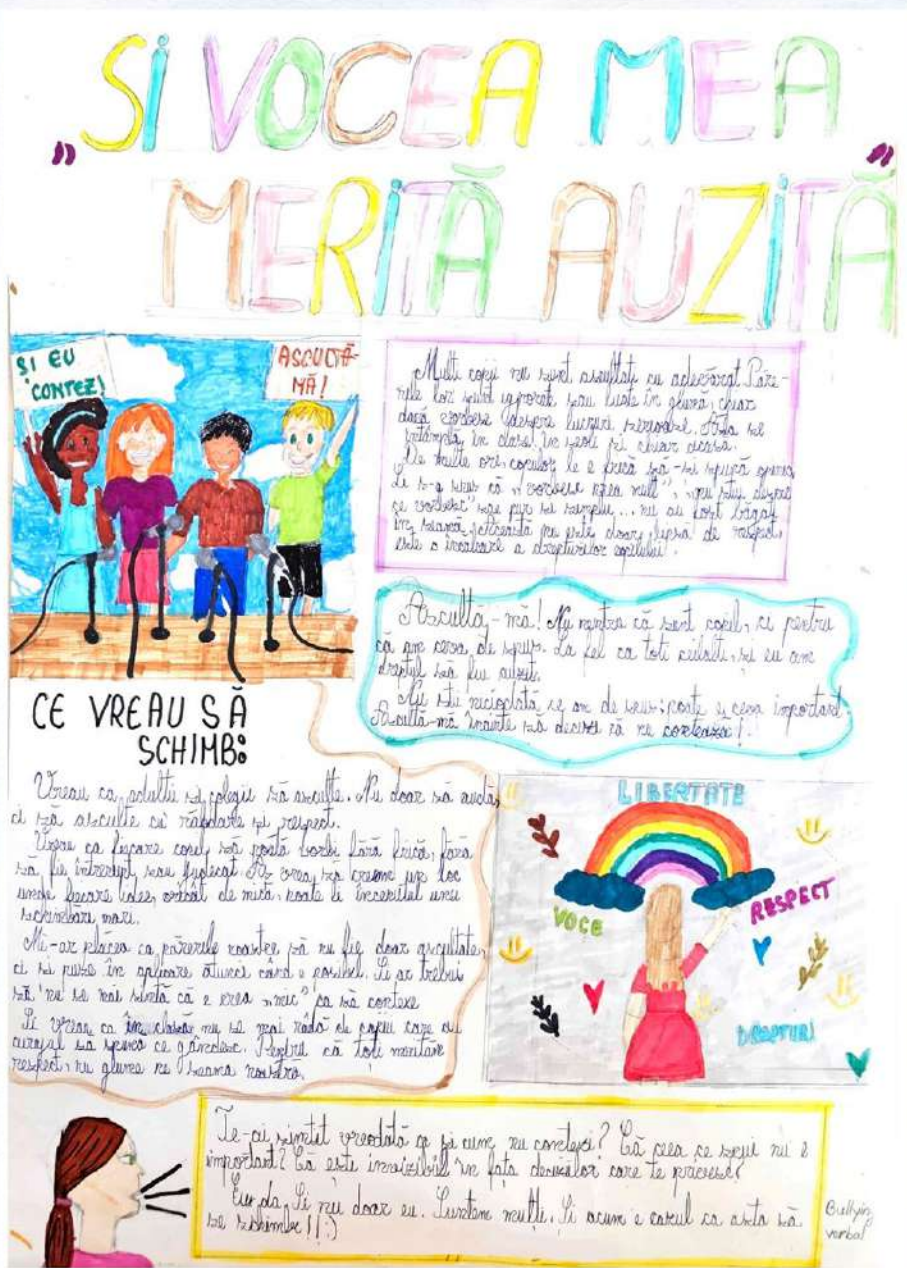 „SI VOCEA MEA
MERITĂ AUZITĂ"
ȘI EU
CONTEZ!
ASCULTĂ-
MĂ!
Multi copii nu sunt ascultati cu adevărat. Păre-
rile lor sunt ignorate sau luate în glumă, chiar
dacă vorbesc despre lucruri serioase. Asta se
întâmplă în clasă, în școli și chiar acasă.
De multe ori, copiilor le e frică să-și spună opinia.
Le s-a spus că „vorbesc prea mult", „nu știu despre
ce vorbesc" sau pur și simplu... nu au fost băgați
în seamă. Aceasta nu este doar lipsă de respect,
este o încălcare a drepturilor copilului!
Ascultă-mă! Nu pentru că sunt copil, ci pentru
că am ceva de spus. La fel ca toti ceilalti, și eu am
dreptul să fiu auzit.
Nu știi niciodată ce am de spus: poate e ceva important.
Ascultă-mă înainte să decizi că nu contează!
CE VREAU SĂ
SCHIMB:
Vreau ca adultii și colegii să asculte. Nu doar să audă,
ci să asculte cu răbdare și respect.
Vreau ca fiecare copil să poată vorbi fără frică, fără
să fie întrerupt sau judecat. Aș vrea să creăm un loc
unde fiecare idee, oricât de mică, poate fi începutul unei
schimbări mari.
Mi-ar plăcea ca părerile noastre să nu fie doar ascultate,
ci și puse în aplicare atunci când e posibil. Și ar trebui
să nu se mai simtă că e prea „mic" ca să conteze
Și vreau ca în clasă nu se mai râdă de copiii care au
curajul să spună ce gândesc. Pentru că toti merităm
respect, nu glume pe seama noastră.
LIBERTATE
VOCE
RESPECT
DREPTURI
Te-ai simtit vreodată ca și cum nu contezi? Că ceea ce spui nu e
important? Că ești invizibil în fața deciziilor care te privesc?
Eu, da. Și nu doar eu. Suntem multi. Și acum e cazul ca asta să
se schimbe!! :)
Bullying
verbal